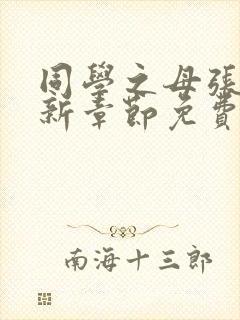 同學之母張
新章節免費
南海十三郎